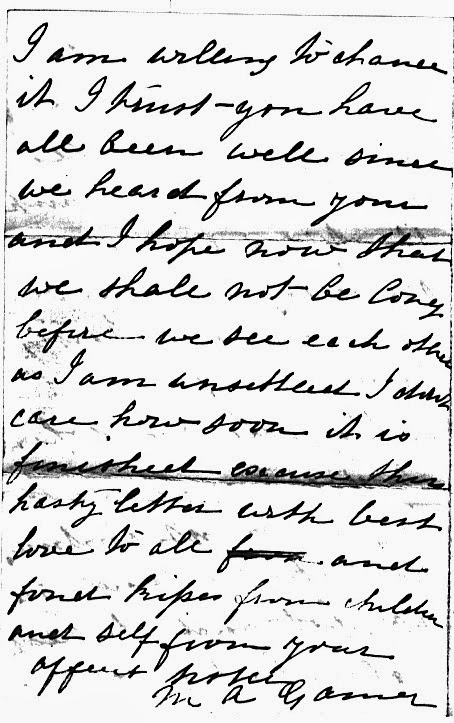 I am willing to chance
it I trust you have
all been well since
we heard from you
and I hope now that
we shall not be long
before we see each other
as I am unsettled I dont
care how soon it is
finished excuse this
hasty letter with best
love to all from and
fond kisses from children
and self from your
affect sister
M A Garner